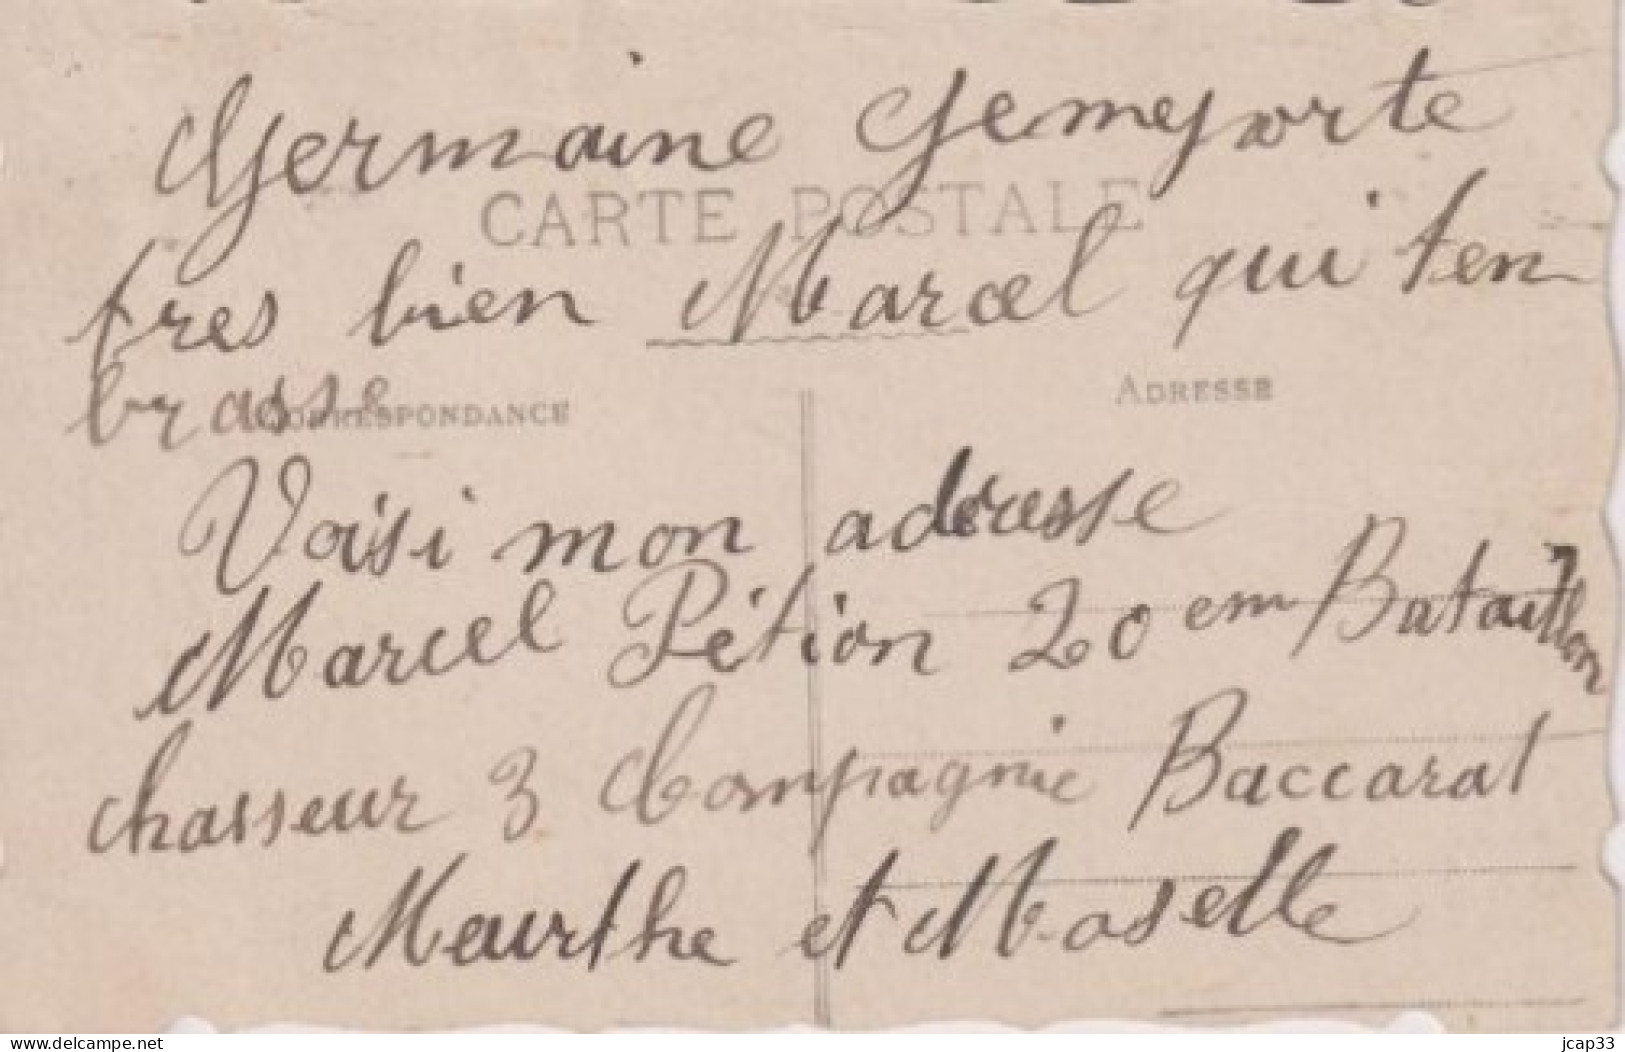 Germaine Jemeporte
CARTE POSTALE
tres bien Marcel qui t'en
brasse
CORRESPONDANCE
ADRESSE
Voisi mon adresse
Marcel Pétion 20 em Bataillon
chasseur 3 Compagnie Baccarat
Meurthe et Moselle
delcampe.net
jcap33